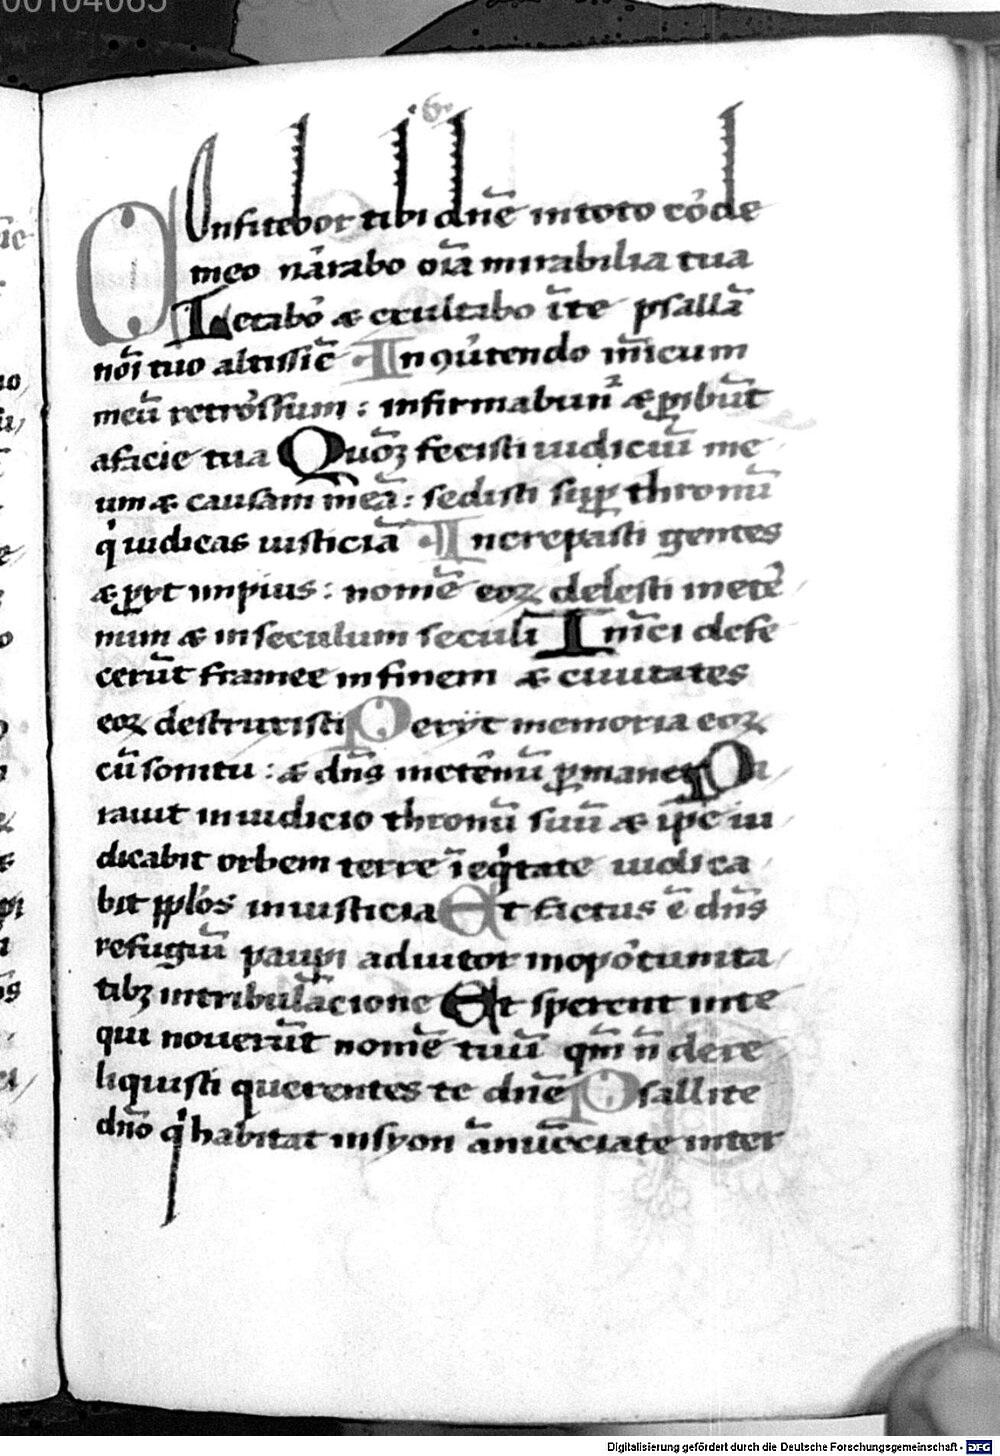 00104065
6
COnfitebor tibi dn̄e in toto cord̕e
meo nārabo oīa mirabilia tua
Letabor̕ & exultabo īte psallā
noī tuo altissīe In ꝯu̕tendo inīicum
meū retro̕ssum : infirmabunt᷑ & ꝑibūt
a facie tua Quoꝫ̄ fecisti iudiciū me
um & causam meā : sedisti suꝑ thronū
qͥ iudicas iusticiā Increpasti gentes
& ꝑijt impius : nomē eoꝝ delesti in ete̕
num & in seculum seculi Inīici defe
cerūt framee in finem & ciuitates
eoꝝ destruxisti Perijt memoria eoꝝ
cū sonitu : & dn̄s in etēnū ꝑmanet Pa
rauit in iudicio thronū suū & ip̄e iu
dicabit orbem terre ī eqͥtate iudica
bit ppl̕os in iusticia Et factus ē dn̄s
refugiū pauꝑi adiutor in opo̕tunita
tibꝫ in tribulacione Et sperent in te
qui nouerūt nomē tuū qm̄ n̄ dere
liquisti querentes te dn̄e Psallite
dn̄o qͥ habitat in syon ānūcciate inter
Digitalisierung gefördert durch die Deutsche Forschungsgemeinschaft - DFG